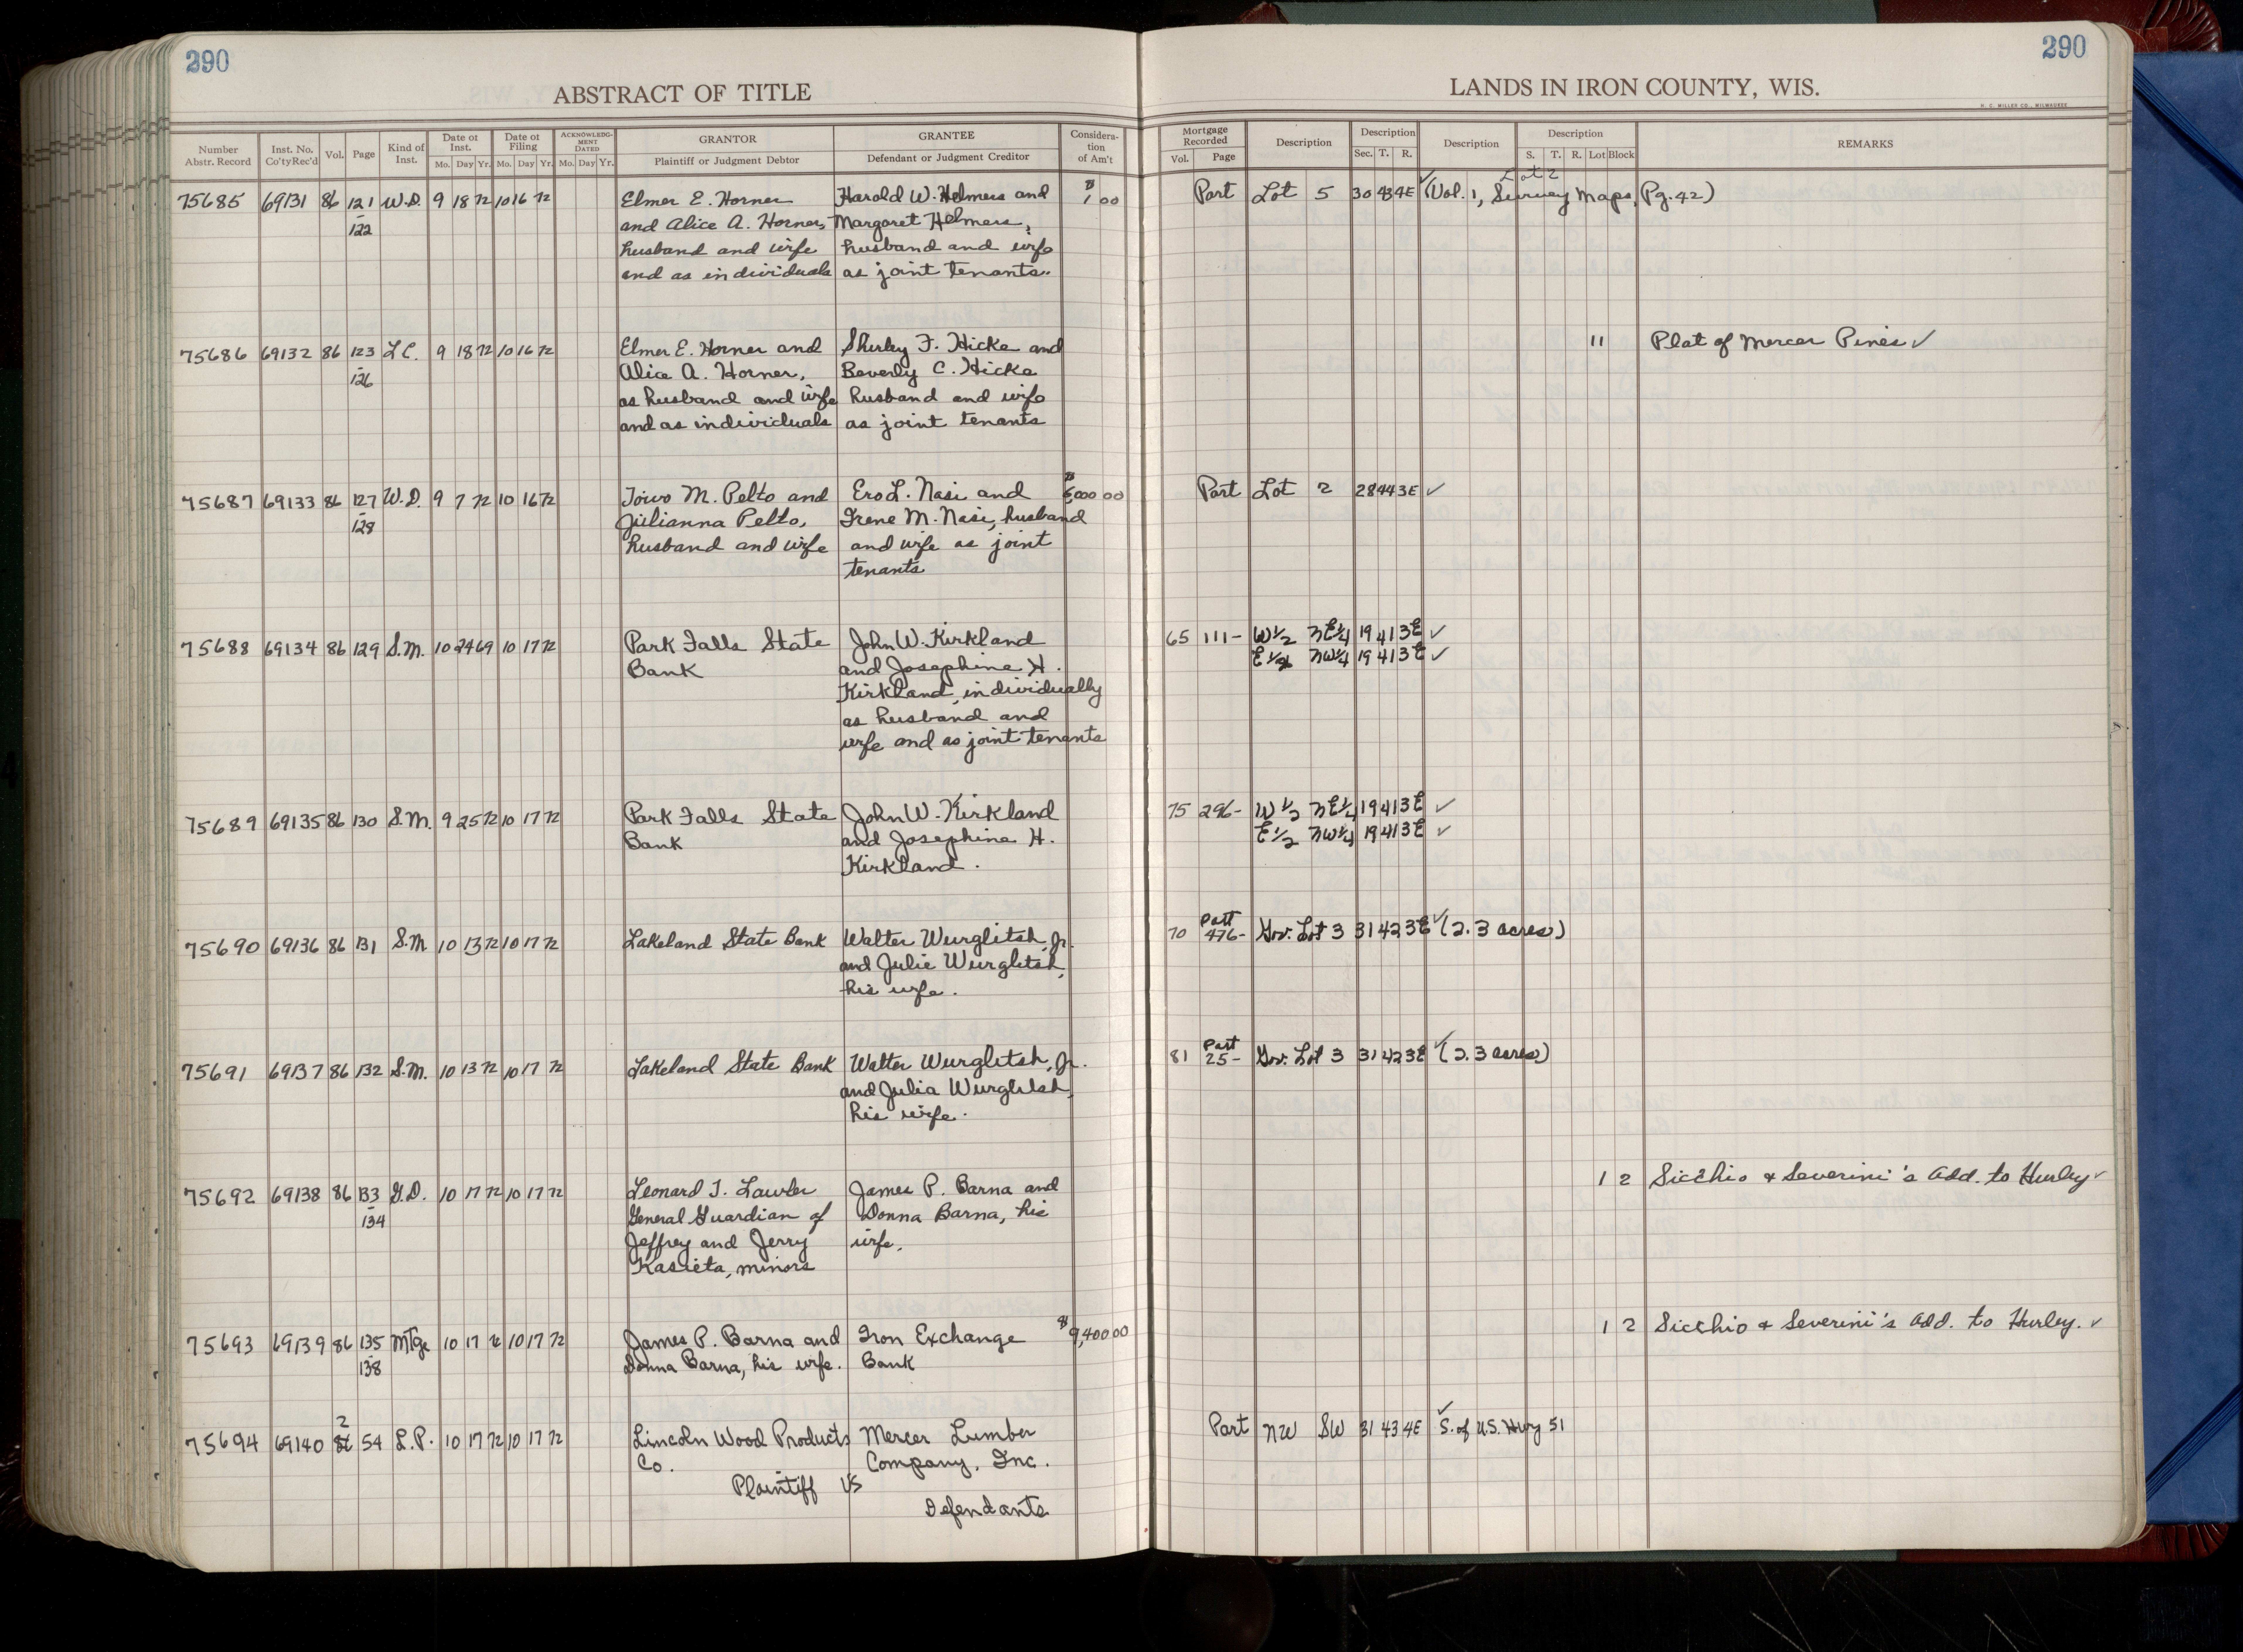 290
290
ABSTRACT OF TITLE
LANDS IN IRON COUNTY, WIS.
H. C. MILLER CO., MILWAUKEE
Number Abstr. Record | Inst. No. Co'ty Rec'd | Vol. | Page | Kind of Inst. | Date of Inst. Mo. Day Yr. | Date of Filing Mo. Day Yr. | ACKNOWLEDGMENT DATED Mo. Day Yr. | GRANTOR Plaintiff or Judgment Debtor | GRANTEE Defendant or Judgment Creditor | Consideration of Am't | Mortgage Recorded Vol. Page | Description | Description Sec. T. R. | Description | Description S. T. R. Lot Block | REMARKS
Lot 2
75685 69131 86 121 W.D. 9 18 72 10 16 72 Elmer E. Horner Harold W. Helmers and $1 00 Part Lot 5 30 43 4E ✓ (Vol. 1, Survey Maps, Pg. 42)
-122 and Alice A. Horner, Margaret Helmers,
husband and wife husband and wife
and as individuals as joint tenants.
75686 69132 86 123 L.C. 9 18 72 10 16 72 Elmer E. Horner and Shirley F. Hicke and 11 Plat of Mercer Pines ✓
-126 Alice A. Horner, Beverly C. Hicke
as husband and wife husband and wife
and as individuals as joint tenants
75687 69133 86 127 W.D. 9 7 72 10 16 72 Toivo M. Pelto and Ero L. Nasi and $6,000 00 Part Lot 2 28 44 3E ✓
-128 Julianna Pelto, Irene M. Nasi, husband
husband and wife and wife as joint
tenants
75688 69134 86 129 S.M. 10 24 69 10 17 72 Park Falls State John W. Kirkland 65 111- W½ NE¼ 19 41 3E ✓
Bank and Josephine H. E½ NW¼ 19 41 3E ✓
Kirkland, individually
as husband and
wife and as joint tenants
75689 69135 86 130 S.M. 9 25 72 10 17 72 Park Falls State John W. Kirkland 75 296- W½ NE¼ 19 41 3E ✓
Bank and Josephine H. E½ NW¼ 19 41 3E ✓
Kirkland.
75690 69136 86 131 S.M. 10 13 72 10 17 72 Lakeland State Bank Walter Wurglitsh, Jr. 70 Part 476- Gov. Lot 3 31 42 3E ✓ (2.3 acres)
and Julie Wurglitsh,
his wife.
75691 69137 86 132 S.M. 10 13 72 10 17 72 Lakeland State Bank Walter Wurglitsh, Jr. 81 Part 25- Gov. Lot 3 31 42 3E ✓ (2.3 acres)
and Julia Wurglitsh,
his wife.
75692 69138 86 133 G.D. 10 17 72 10 17 72 Leonard T. Lawler James P. Barna and 1 2 Sicchio & Severini's Add. to Hurley ✓
-134 General Guardian of Donna Barna, his
Jeffrey and Jerry wife.
Kasieta, minors
75693 69139 86 135 Mtge 10 17 72 10 17 72 James P. Barna and Iron Exchange $9,400 00 1 2 Sicchio & Severini's Add. to Hurley. ✓
-138 Donna Barna, his wife. Bank
2
75694 69140 86 54 L.P. 10 17 72 10 17 72 Lincoln Wood Products Mercer Lumber Part NW SW 31 43 4E ✓ S. of U.S. Hwy 51
Co. Company, Inc.
Plaintiff VS
Defendants